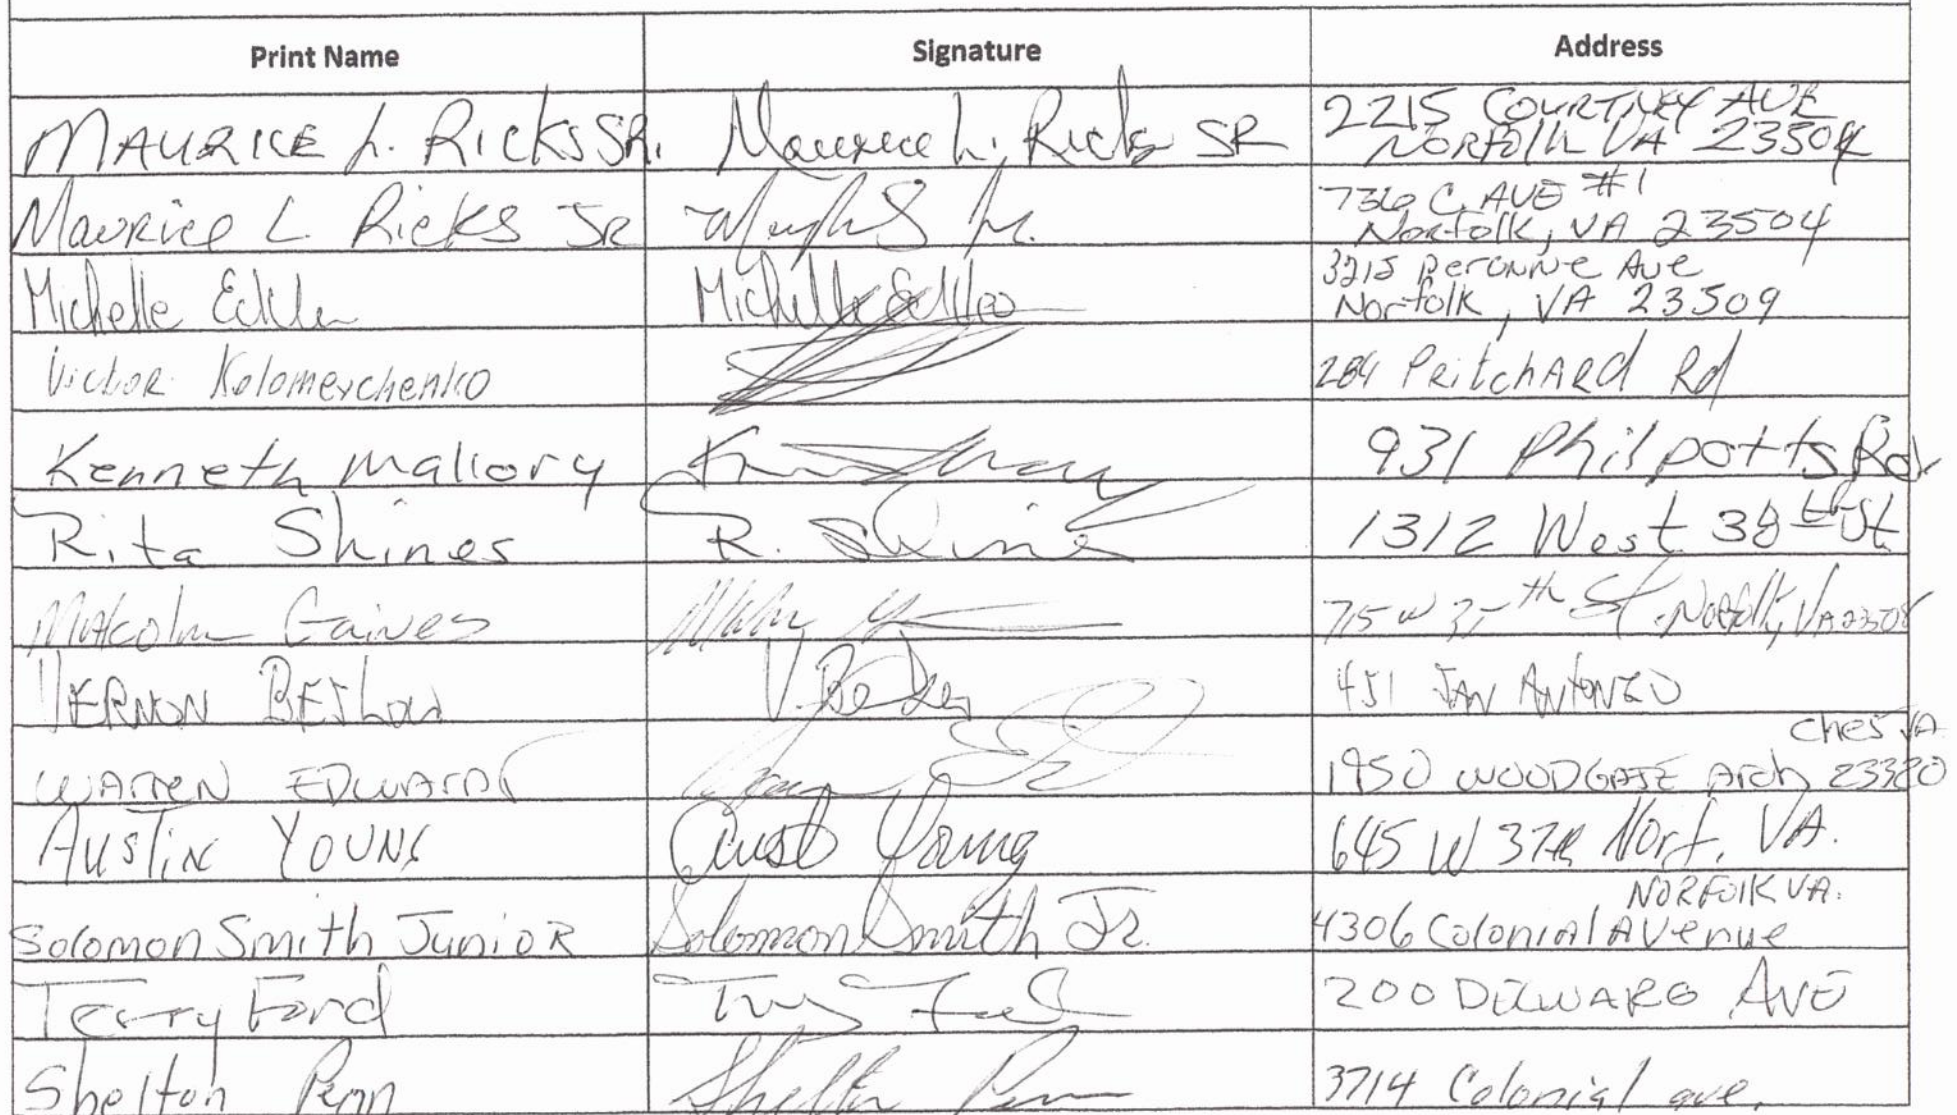 Print Name Signature Address
MAURICE L. RICKS SR. Maurice L. Ricks SR 2215 COURTNEY AVE
NORFOLK VA 23504
Maurice L. Ricks JR 736 C AVE #1
Norfolk, VA 23504
Michelle Michelle 3215 Peronne Ave
Norfolk, VA 23509
Victor 264 Pritchard Rd
Kenneth Mallory 931 Philpotts Rd
Rita Shines R. Shines 1312 West 38th St
Malcolm Gaines 715 W 37th St. Norfolk, VA 23508
VERNON V. 451 SAN ANTONIO
Ches VA
WARREN EDWARDS 1950 WOODGATE Arch 23320
AUSTIN YOUNG Aust Young 645 W 37th Norf. VA.
NORFOLK VA.
Solomon Smith Junior Solomon Smith Jr. 4306 Colonial Avenue
Terry Ford 200 DELWARE AVE
Shelton Penn Shelton Penn 3714 Colonial ave.